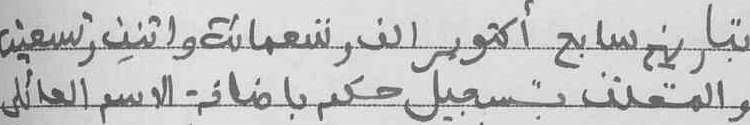 بتاريخ سابع أكتوبر الف وتسعمائة واثنين وتسعين
والمتعلق بتسجيل حكم باضافة الاسم العائلي